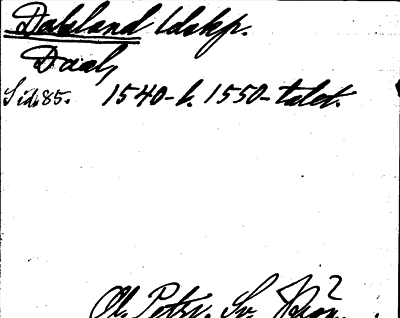 Dalsland ldskp.
Daal,
Sid. 85. 1540- k. 1550-talet.
Ol. Petri. Sv. Krön.